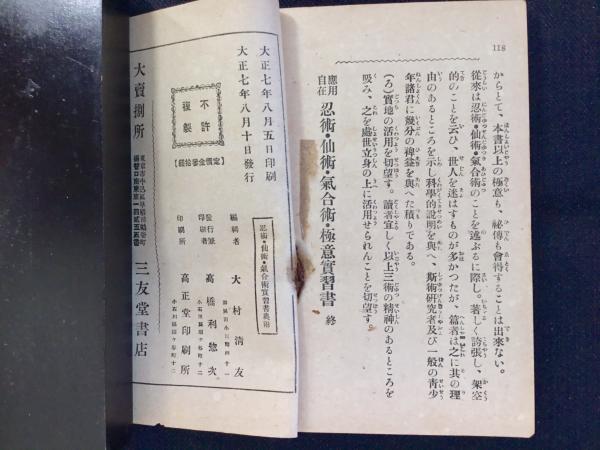 118
からとて、本書以上の極意も、秘傳も會得することは出來ない。
從來は忍術・仙術・氣合術のことを述ぶるに際し。著しく誇張し、架空
的のことを云ひ、世人を迷はすものが多かつたが、篇者は之に其の理
由のあるところを示し科學的說明を與へ、斯術硏究者及び一般の靑少
年諸君に幾分の裨益を與へた積りである。
(ろ)實地の活用を切望す。讀者宜しく以上三術の精神のあるところを
吸み、之を處世立身の上に活用せられんことを切望す。
應用自在 忍術・仙術・氣合術・極意實習書 終
大正七年八月五日印刷
大正七年八月十日發行
不許複製
定價金參拾錢
忍術・仙術・氣合術實習書奧附
編輯者 大村淸友
發行兼印刷者 高橋利惣次
印刷所 高正堂印刷所
大賣捌所
三友堂書店